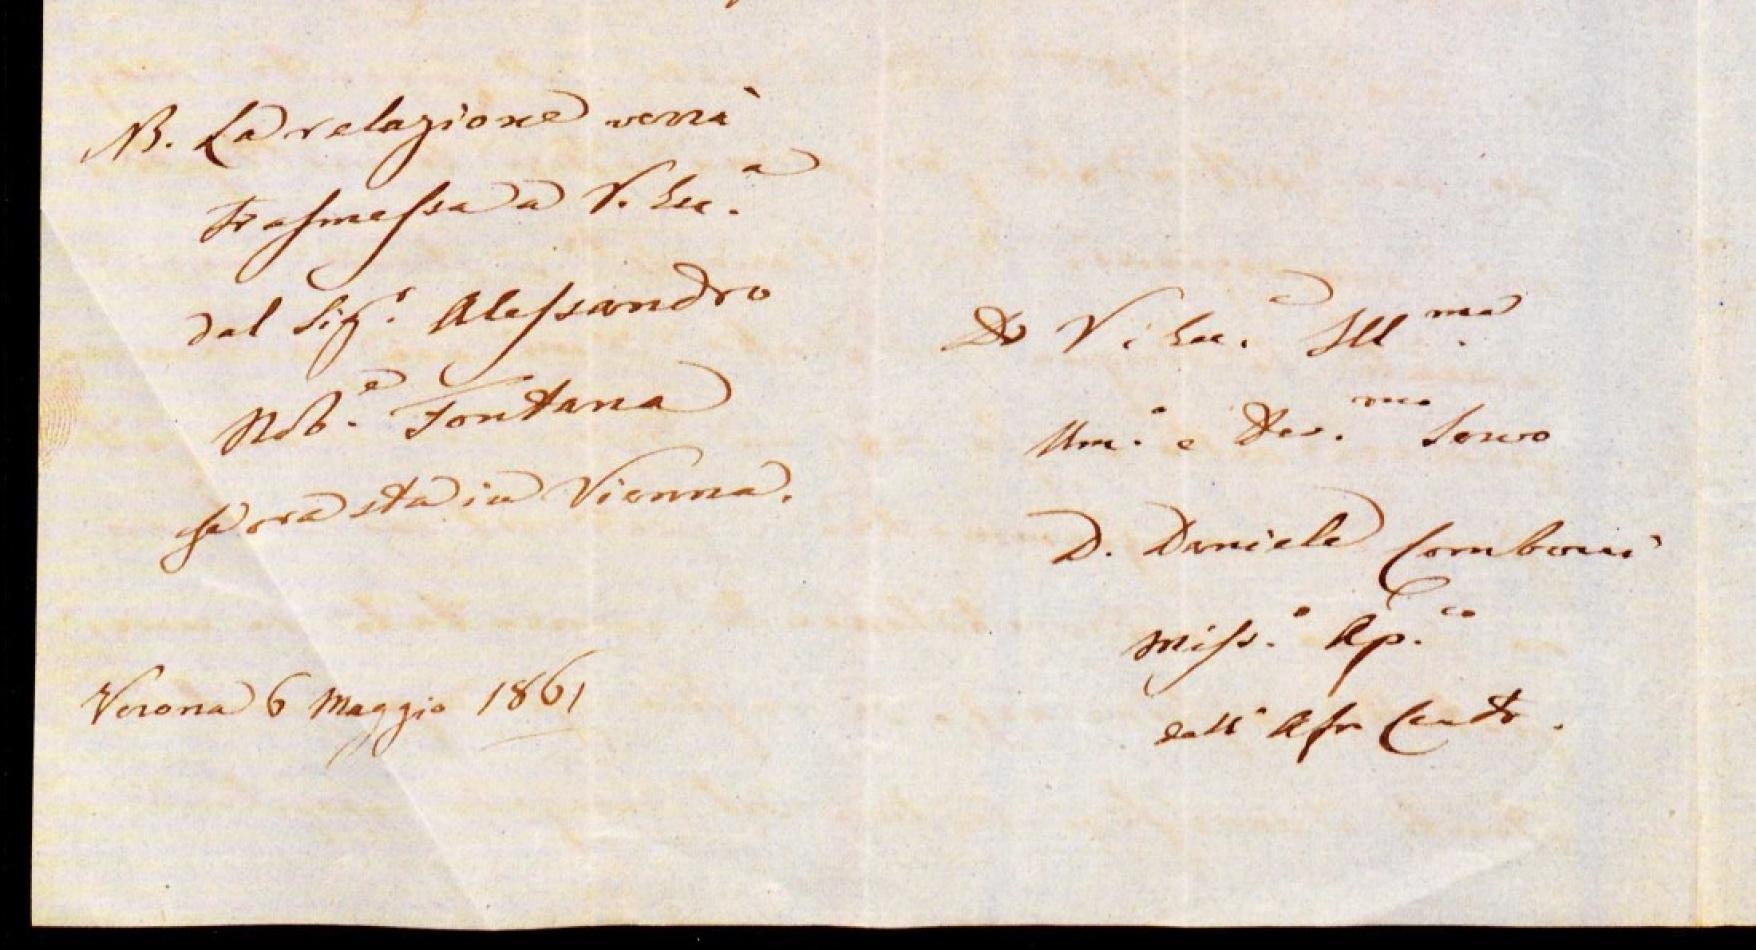 NB. La relazione verrà
trasmessa a V. Ecc.a
dal Sig.r Alessandro
Nob.e Fontana
ora sta in Vienna.
Verona 6 Maggio 1861
Di V. Ecc. Ill.ma
Um.o e Dev.mo Servo
D. Daniele Comboni
Miss.o Ap.co
dell' Afr. Centr.